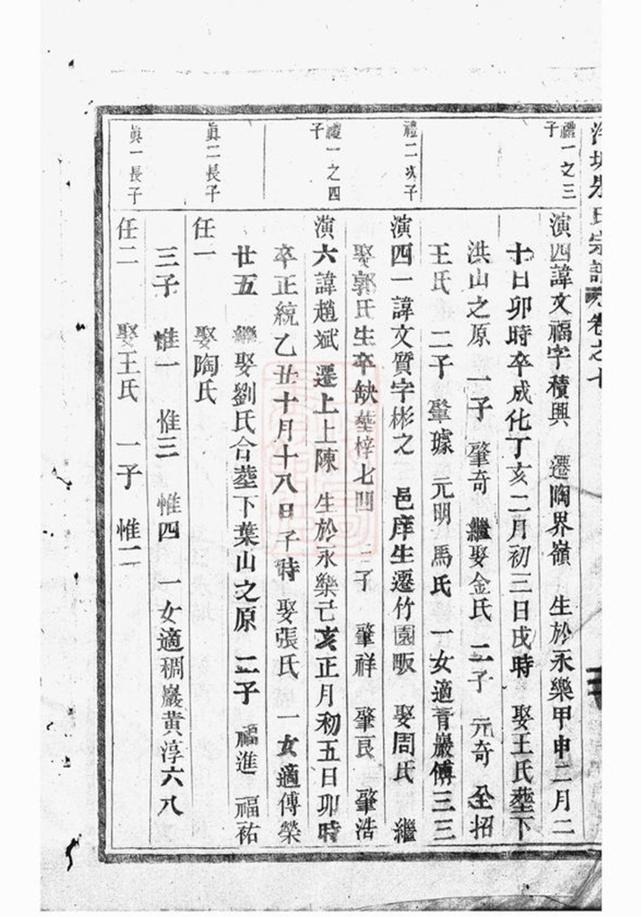 氏宗譜 卷之七
禮一之三子
演四諱文福字積興 遷陶界嶺 生於永樂甲申二月二
十日卯時卒成化丁亥二月初三日戌時 娶王氏塟下
洪山之原 一子 肇奇 繼娶金氏 二子 元奇 全招
王氏 二子 肇璩 元明 馬氏 一女適青巖傅三三
禮二次子
演四一諱文質字彬之 邑庠生遷竹園畈 娶周氏 繼
娶郭氏生卒缺塟梓七凹 二子 肇祥 肇良 肇浩
禮一之四子
演六諱趙斌 遷上上陳 生於永樂己亥正月初五日卯時
卒正統乙丑十月十八日子時 娶張氏 一女適傅榮
廿五 繼娶劉氏合塟下葉山之原 二子 福進 福祐
眞二長子
任一 娶陶氏
三子 惟一 惟三 惟四 一女適稠巖黃淳六八
眞一長子
任二 娶王氏 一子 惟二